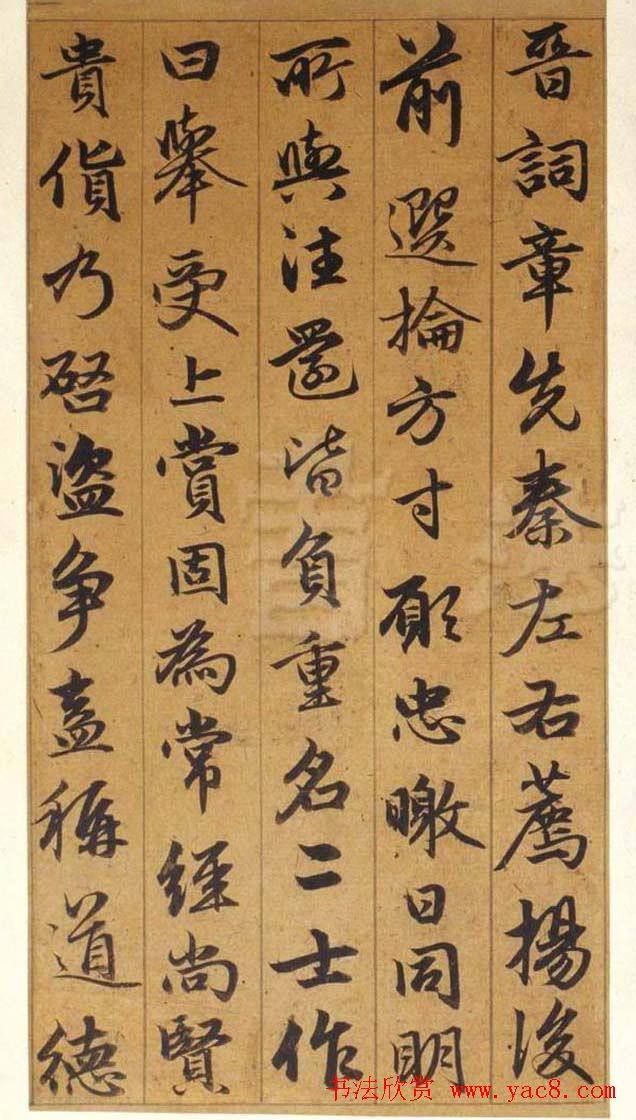 晋詞章先秦左右薦揚後
前選掄方寸願忠曒日同明
所與往還皆負重名二士作
曰舉受上賞固為常經尚賢
貴貨乃啓盜争盍稱道德
书法欣赏 www.yac8.com